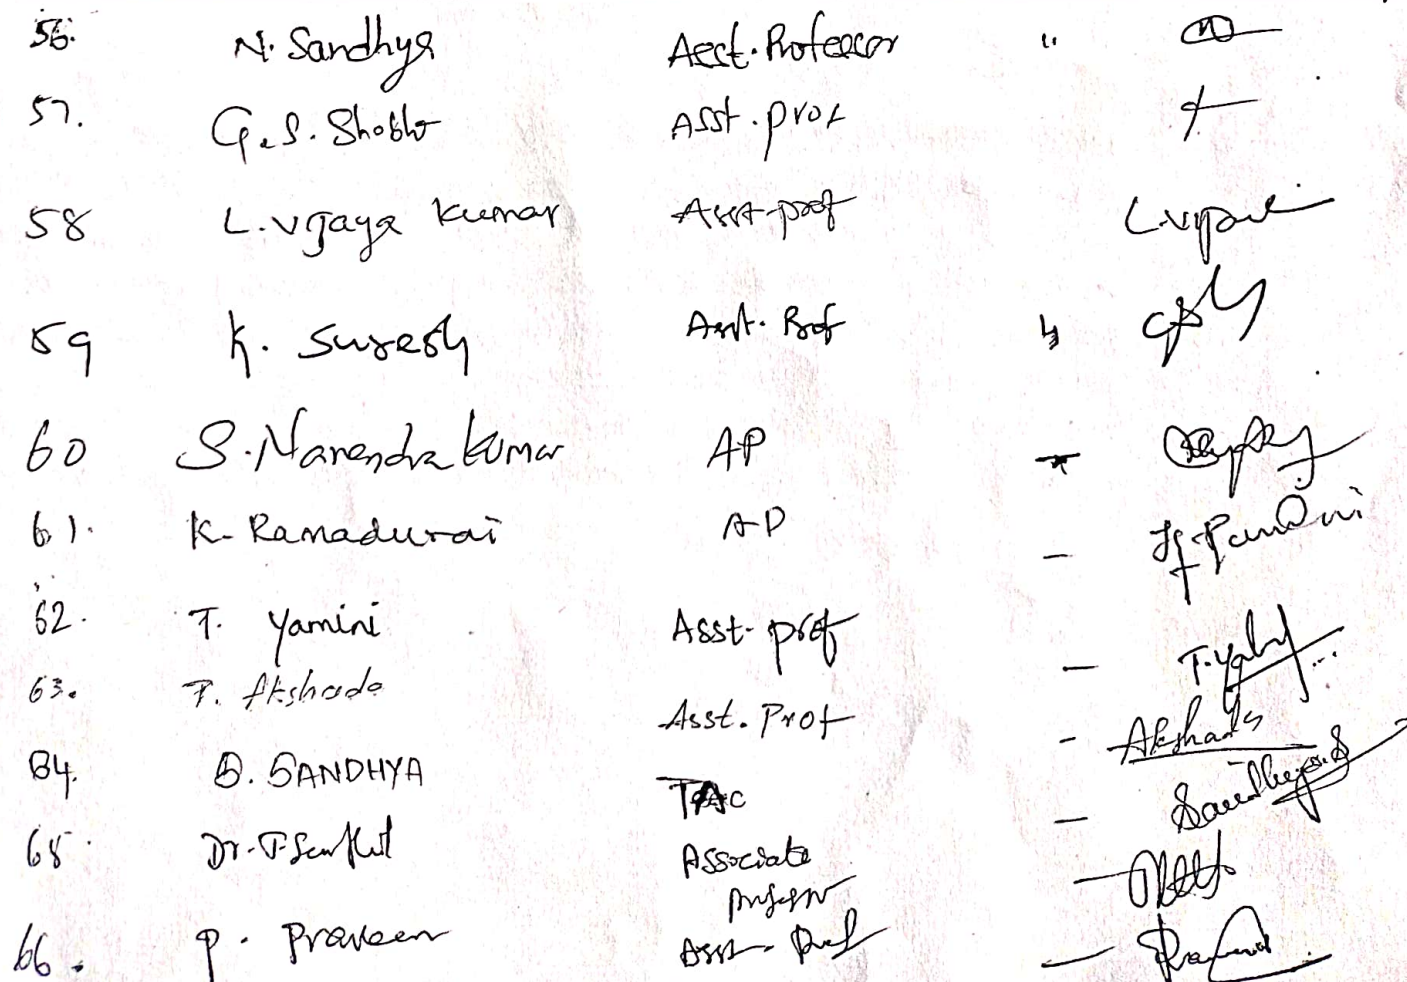 56. N. Sandhya Asst. Professor "
57. G.S. Shobha Asst. prof
58 L. Vijaya Kumar Asst. prof L.Vijaya
59 K. Suresh Asst. Prof "
60 S. Narendra Kumar AP
61. K. Ramadurai AP
62. T. Yamini Asst. prof -
63. P. Akshada Asst. Prof - Akshada
64. D. SANDHYA - Sandhya.S
65. Dr. T. Associate Professor -
66. P. Praveen Asst. Prof - Praveen